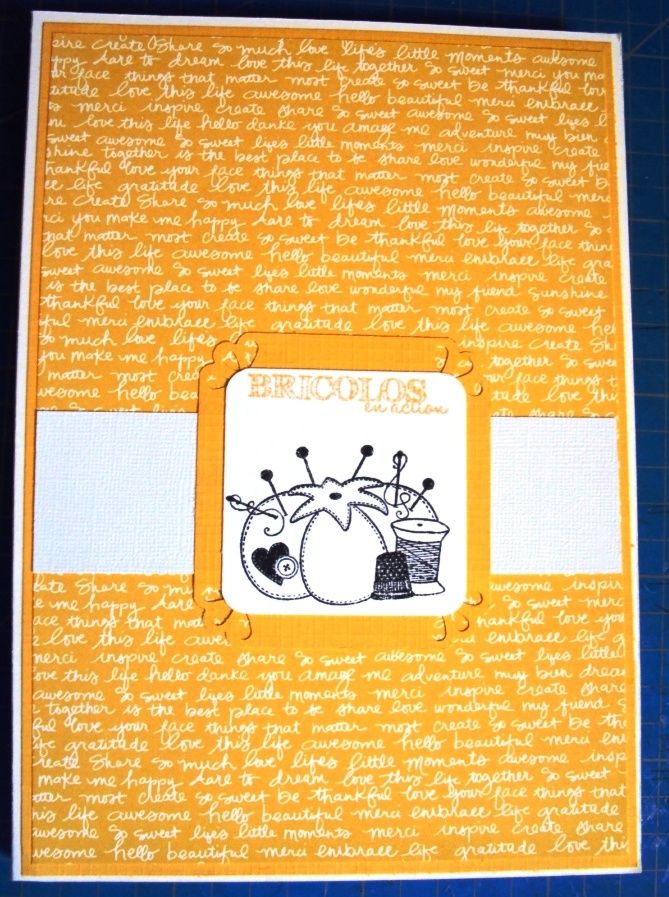 pire create Share So much love life's little Moments awesome
ppy dare to dream love this life together So sweet merci you ma
ur face things that matter most create So sweet be thankful
titude love this life awesome hello beautiful merci embrace
merci inspire create share So awesome So sweet
love this life hello danke you me adventure muy bien
sweet awesome So sweet little moments merci inspire create
shine together is the best place to be share love wonderful my frie
hankful love your face things that matter most create So sweet b
life gratitude love this life awesome hello beautiful mer
re create Share So much love life's little Moments awesome
ci you make me happy dare to dream love this life together So
hat matter most create So sweet be thankful love your face thin
love this life awesome hello beautiful merci embrace life gra
sweet awesome So sweet little moments merci inspire create
is the best place to be share love wonderful my friend Sunshine
thankful love your face things that matter most create So sweet
ful merci embrace life gratitude love this life awesome hel
So much love life's inspire create Sh
you make me happy together So sweet
matter most create your face things t
this life awesome embrace life grat
create Share So
BRICOLOS
en action
eate Share So much awesome inspir
ke me happy dare sweet merci you
tter most thankful love you
love this life awe gratitude
merci inspire create share So sweet awesome So sweet little
ove this life hello danke you me adventure muy bien drea
awesome So sweet little moments merci inspire create share
together is the best place to be share love wonderful my friend S
ful love your face things that matter most create So sweet be th
ife gratitude love this life awesome hello beautiful merci embr
create Share So much love life's little Moments awesome insp
make me happy dare to dream love this life together So sweet
atter most create So sweet be thankful love your face things that
his life awesome hello beautiful merci embrace life gratitude
awesome So sweet little moments merci inspire create share
wesome hello beautiful merci embrace life gratitude love thi